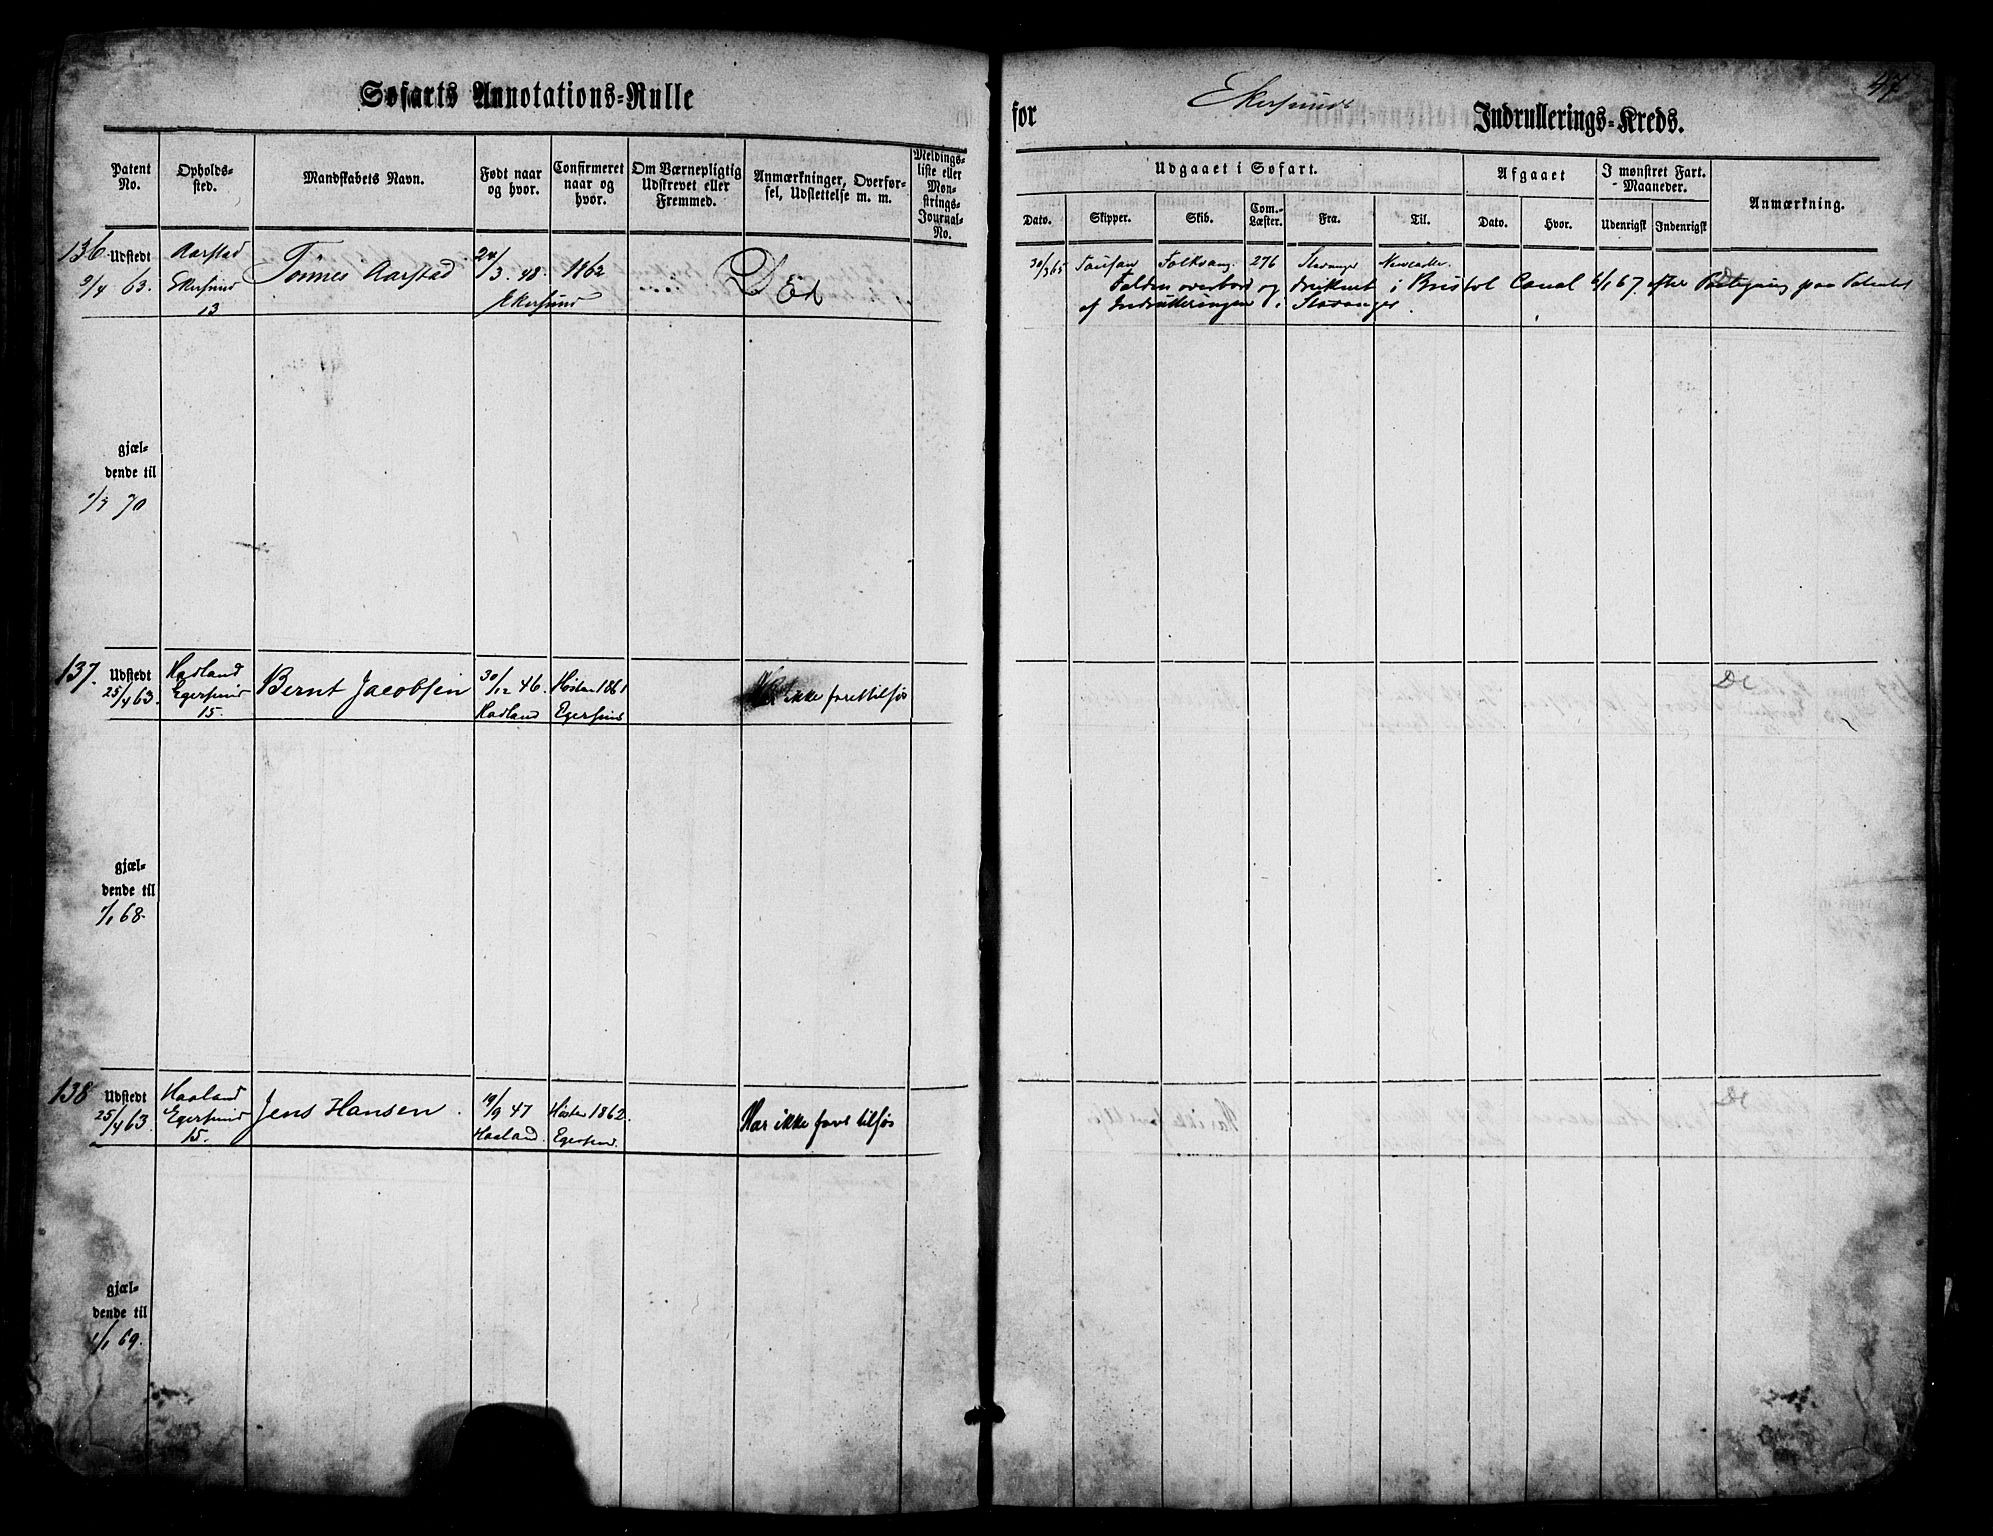 Søfarts Annotations-Rulle
for Ekersunds Indrullerings-Kreds.
47
Patent No.
Opholds-sted.
Mandskabets Navn.
Født naar og hvor.
Confirmeret naar og hvor.
Om Værnepligtig Udskrevet eller Fremmed.
Anmærkninger, Overførsel, Udslettelse m. m.
Meldingsliste eller Mønstrings-Journal-No.
Udgaaet i Søfart.
Afgaaet
I mønstret Fart. Maaneder.
Anmærkning.
Dato.
Skipper.
Skib.
Com.-Læster.
Fra.
Til.
Dato.
Hvor.
Udenrigst
Indenrigst
136. Udstedt Aarstad Tönnes Aarstad 24/3. 48. 1862 Död 30/3 65 Folkvang 276 Stavanger Newcastle.
9/4 63. Ekersund Ekersund Falden overbord og druknet i Bristol Canal 6/1 67. efter Paategning paa Patentet
13 af Indrulleringen i Stavanger
gjæl-
dende til
1/3 70
137. Udstedt Hadland Bernt Jacobsen 30/12 46. Høsten 1861 Har ikke faret tilsøs
25/4 63. Egersund Hadland Egersund
15.
gjæl-
dende til
1/1 68.
138 Udstedt Haaland Jens Hansen 19/9 47 Høsten 1862. Har ikke faret tilsøs
25/4 63. Egersund Haaland. Egersund.
15.
gjæl-
dende til
1/1 69.